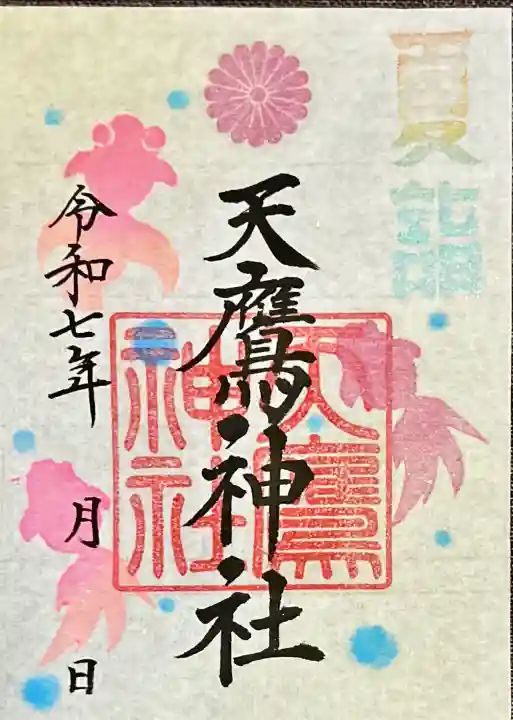 夏詣
天鷹神社
天鷹神社
令和七年 月 日